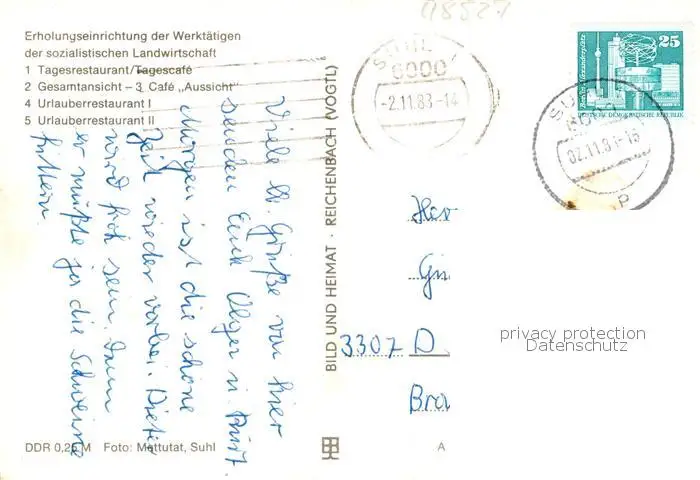 48527
Erholungseinrichtung der Werktätigen
der sozialistischen Landwirtschaft
1 Tagesrestaurant/Tagescafé
2 Gesamtansicht – 3 Café „Aussicht"
4 Urlauberrestaurant I
5 Urlauberrestaurant II
Viele lb. Grüße von hier
senden Euch Olga u.
Morgen ist die schöne
Zeit wieder vorbei. Dieter
wird froh sein. Denn
er mußte ja die Schweine
füttern.
DDR 0,25 M Foto: Mattutat, Suhl
BILD UND HEIMAT · REICHENBACH (VOGTL)
A
SUHL
6000
-2.11.83-14
25
Berlin-Alexanderplatz
DEUTSCHE DEMOKRATISCHE REPUBLIK
02.11.83-15
Her
Gü
3307 D
Bra
privacy protection
Datenschutz